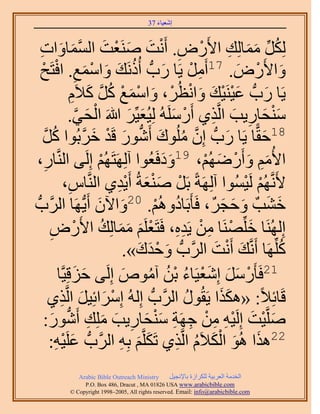 إشعياء 37
لِكُلِّ مَمَالِكِ الأَرْضِ. أَنْتَ صَنَعْتَ السَّمَاوَاتِ
وَالأَرْضَ. 17أَمِلْ يَا رَبُّ أُذُنَكَ وَاسْمَعِ. افْتَحْ
يَا رَبُّ عَيْنَيْكَ وَانْظُرْ، وَاسْمَعْ كُلَّ كَلاَمِ
سَنْحَارِيبَ الَّذِي أَرْسَلَهُ لِيُعَيِّرَ اللهَ الْحَيَّ.
18حَقًّا يَا رَبُّ إِنَّ مُلُوكَ أَشُّورَ قَدْ خَرَّبُوا كُلَّ
الأُمَمِ وَأَرْضَهُمْ، 19وَدَفَعُوا آلِهَتَهُمْ إِلَى النَّارِ،
لأَنَّهُمْ لَيْسُوا آلِهَةً بَلْ صَنْعَةُ أَيْدِي النَّاسِ،
خَشَبٌ وَحَجَرٌ، فَأَبَادُوهُمْ. 20وَالآنَ أَيُّهَا الرَّبُّ
إِلهُنَا خَلِّصْنَا مِنْ يَدِهِ، فَتَعْلَمَ مَمَالِكُ الأَرْضِ
كُلُّهَا أَنَّكَ أَنْتَ الرَّبُّ وَحْدَكَ».
21فَأَرْسَلَ إِشَعْيَاءُ بْنُ آمُوصَ إِلَى حَزَقِيَّا
قَائِلاً: «هكَذَا يَقُولُ الرَّبُّ إِلهُ إِسْرَائِيلَ الَّذِي
صَلَّيْتَ إِلَيْهِ مِنْ جِهَةِ سَنْحَارِيبَ مَلِكِ أَشُّورَ:
22هذَا هُوَ الْكَلاَمُ الَّذِي تَكَلَّمَ بِهِ الرَّبُّ عَلَيْهِ:
Arabic Bible Outreach Ministry الخدمة العربية للكرازة بالإنجيل
P.O. Box 486, Dracut , MA 01826 USA www.arabicbible.com
© Copyright 1998-2005, All rights reserved. Email: info@arabicbible.com